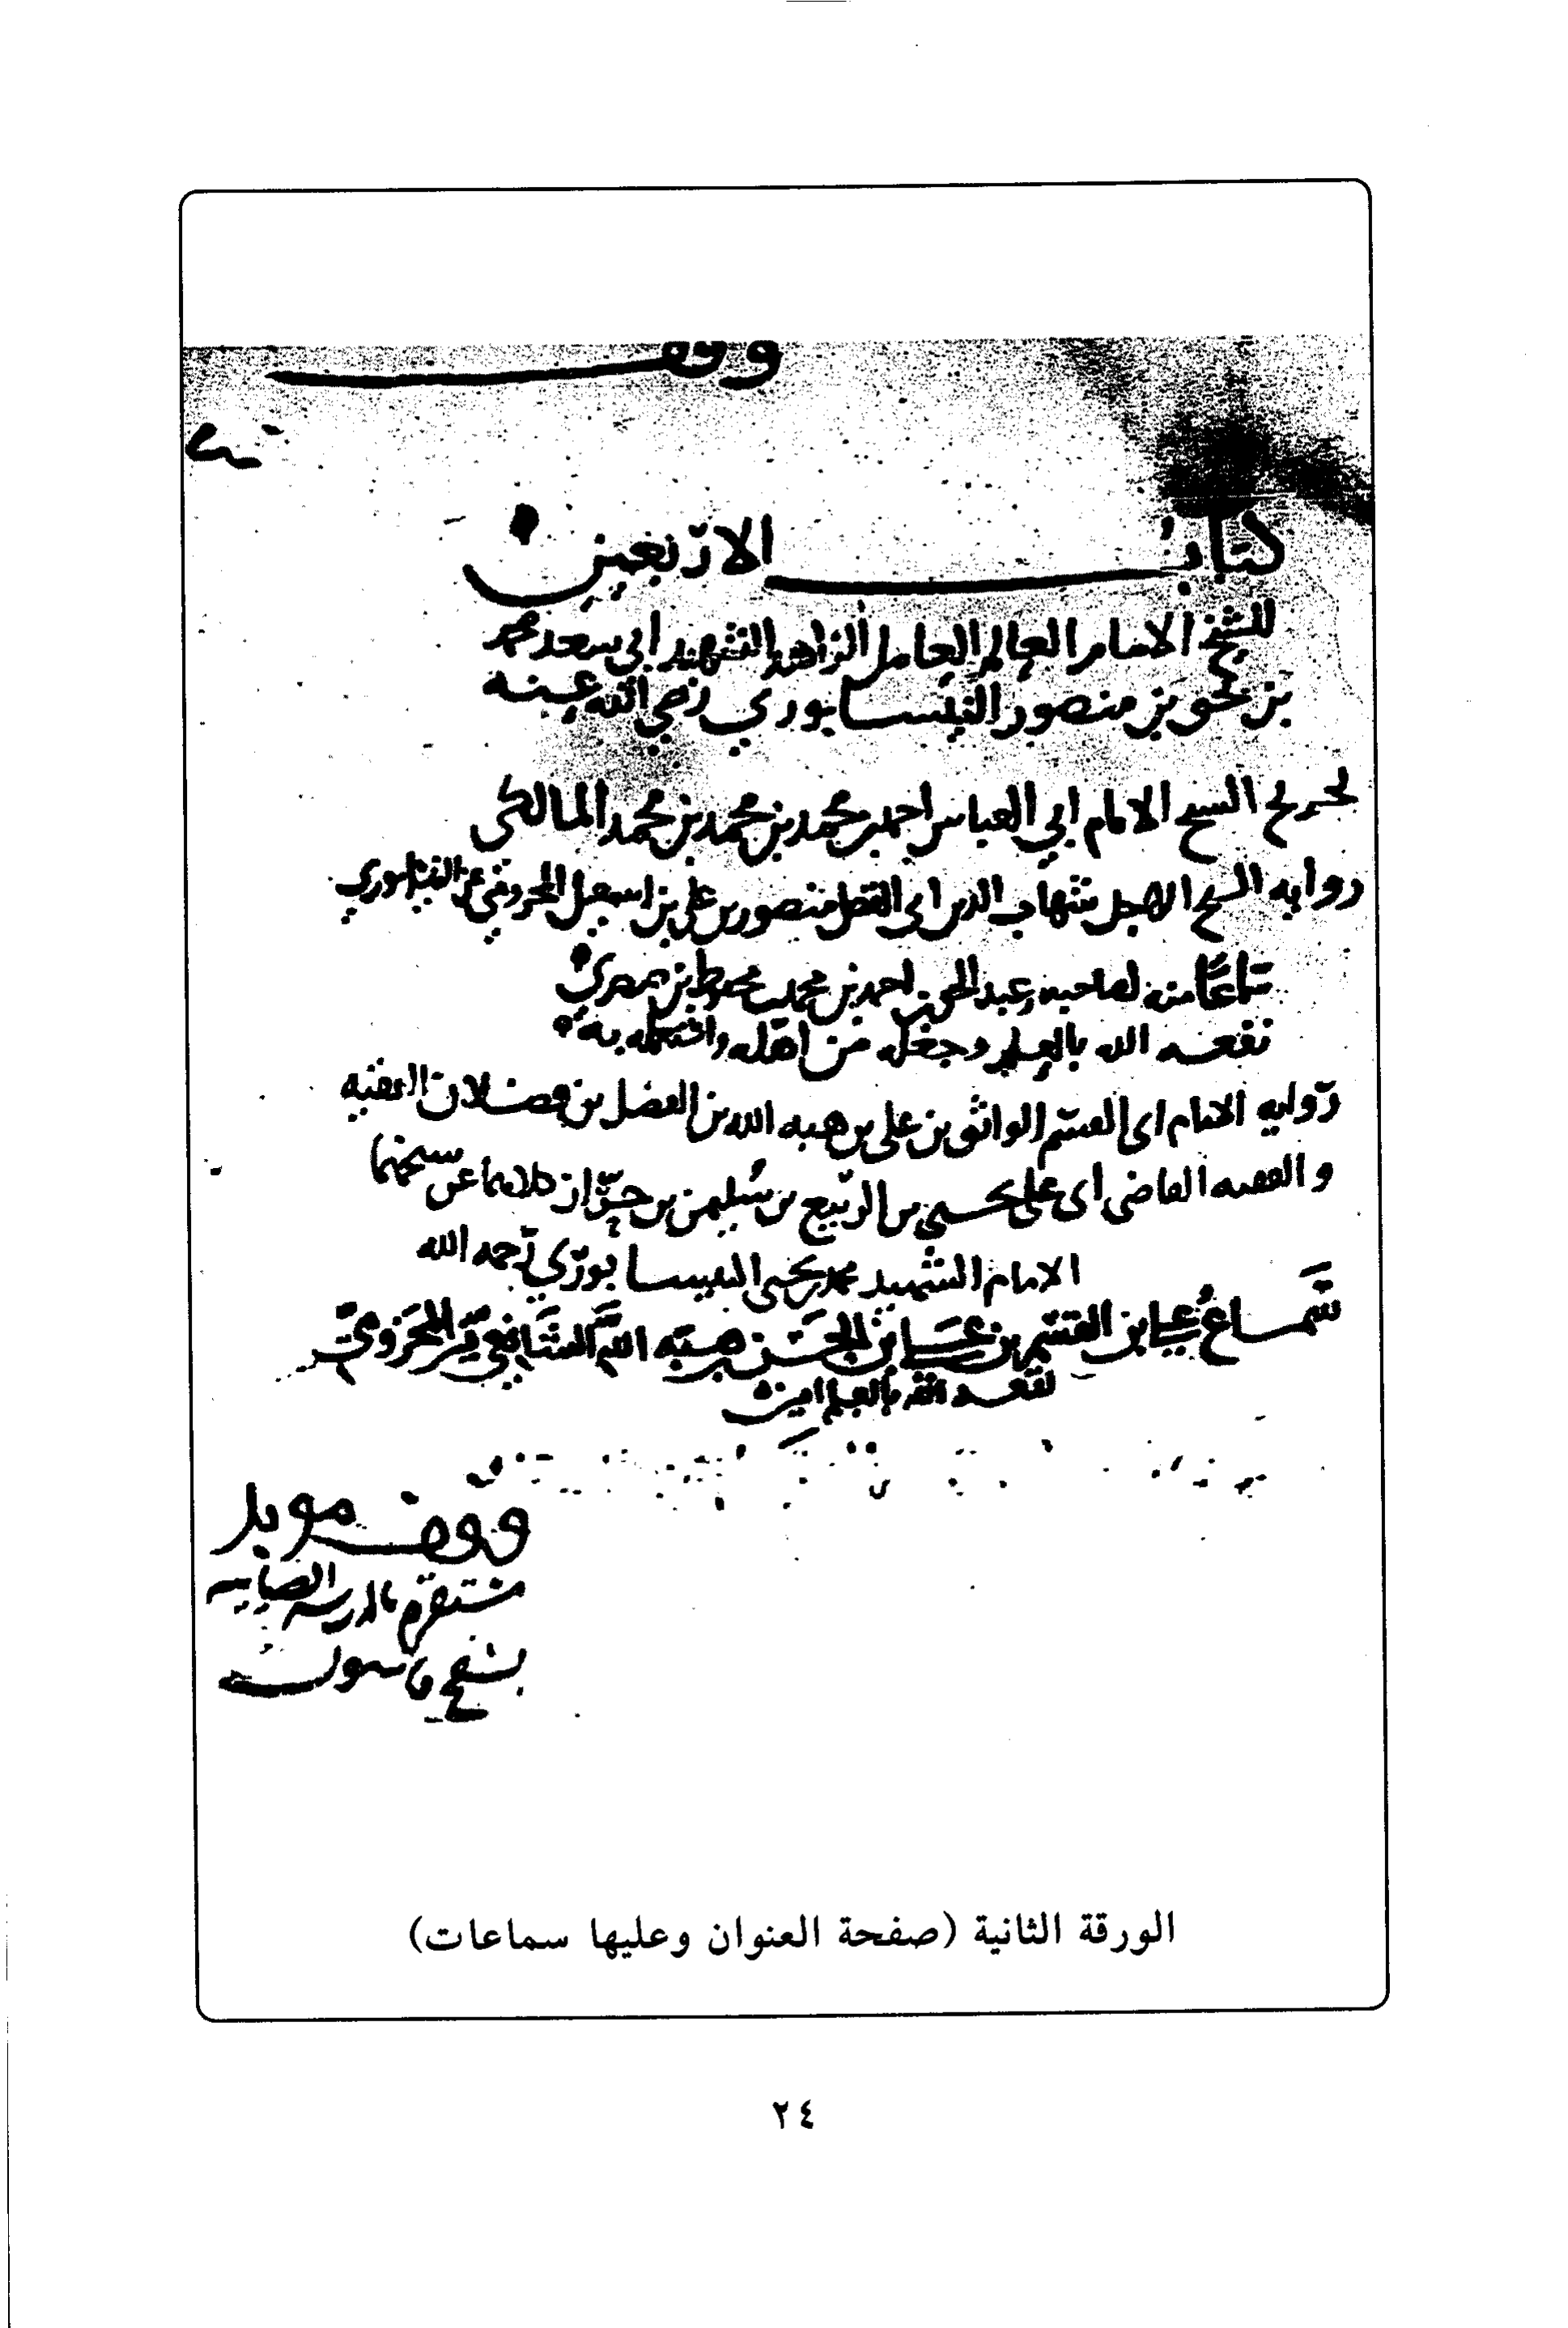 وقف
كتاب الاربعين
للشيخ الامام العالم العامل الزاهد الشهيد ابي سعد محمد
بن يحيى بن منصور النيسابوري رضي الله عنه
تخريج الشيخ الامام ابي العباس احمد بن محمد بن محمد بن محمد المالكي
روايه الشيخ الاجل شهاب الدين ابي الفضل منصور بن علي بن اسمعيل المخزومي عن النيسابوري
سماعا منه لصاحبه عبد الرحمن بن احمد بن محمد بن محفوظ بن صصرى
نفعه الله بالعلم وجعله من اهله به
روايه الامام ابي القسم الواثق بن علي بن هبه الله بن الفضل بن فضلان الفقيه
والفقيه القاضي ابي علي يحيى بن الربيع بن سليمن بن حراز كلاهما عن شيخهما
الامام الشهيد محمد بن يحيى النيسابوري رحمه الله
سماع علي بن القسم بن علي بن الحسن بن هبة الله الشافعي من المخزومي
نفعه الله بالعلم امين
وقف موبد
مستقره بالمدرسه الضيائيه
بسفح قاسيون
الورقة الثانية (صفحة العنوان وعليها سماعات)
٢٤